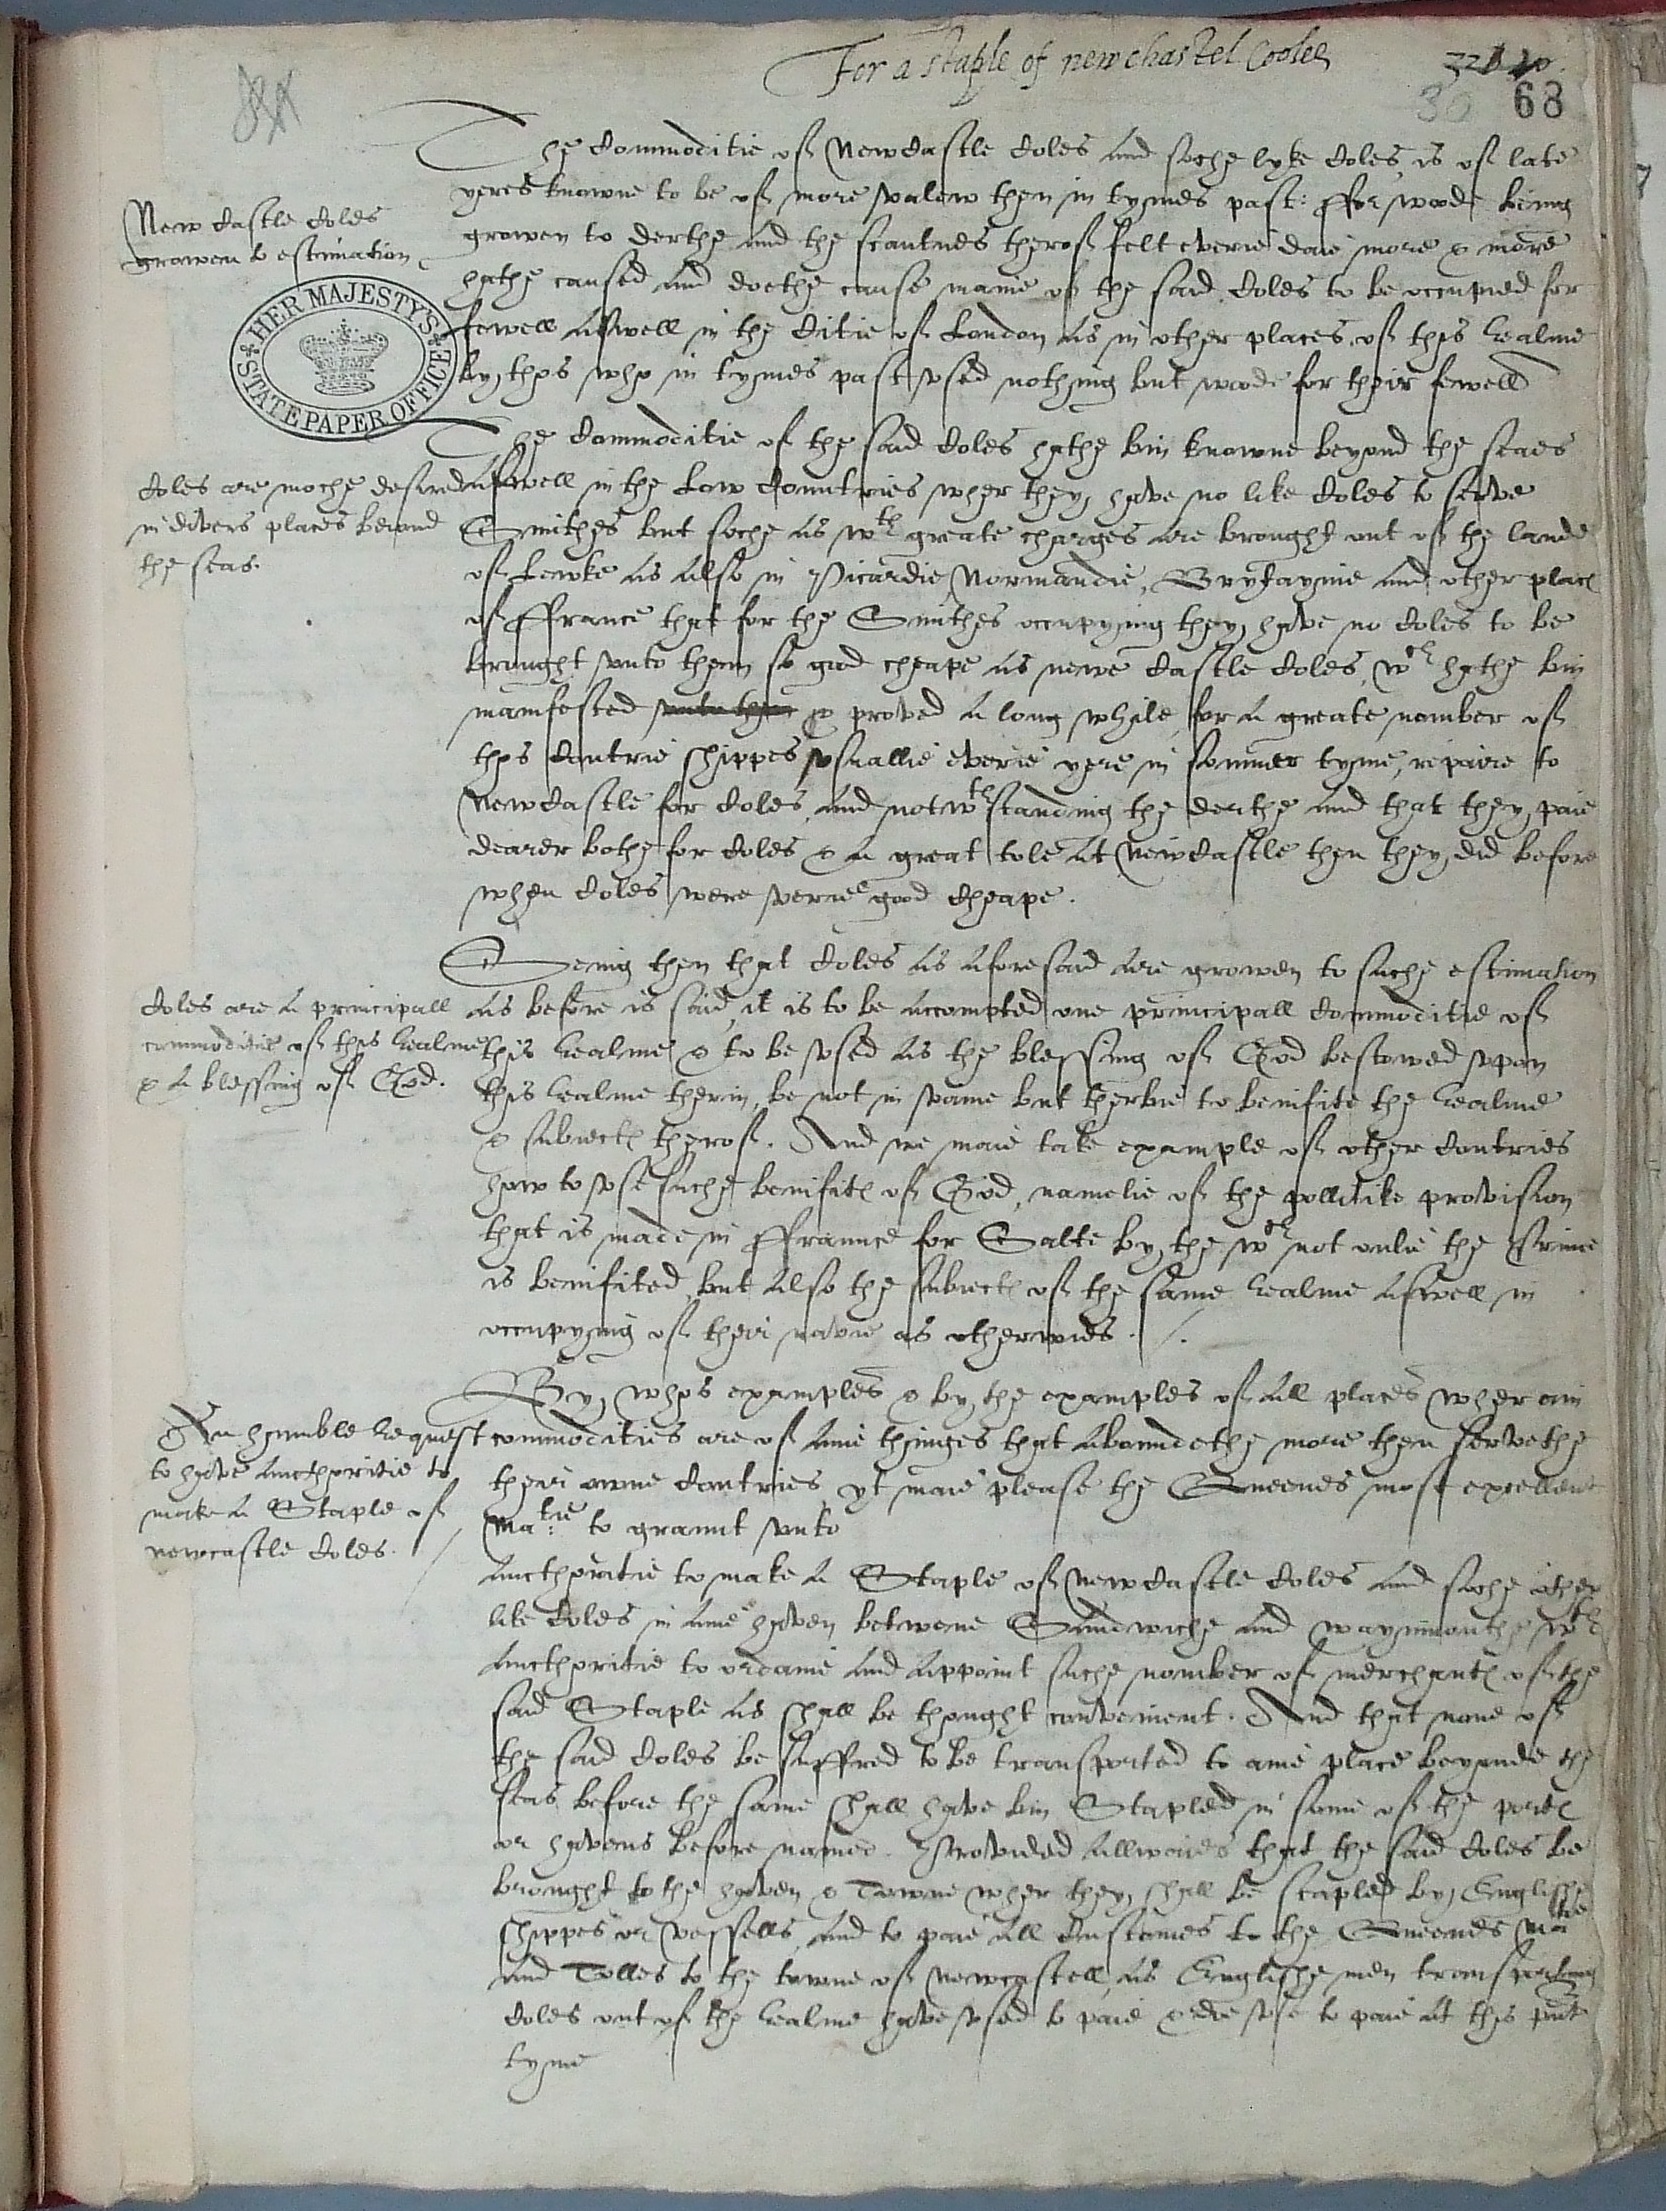 For a staple of newchastel Cooles
68
The Commoditie of Newcastle Coles and soche lyke Coles, is of late
yeres knowne to be of more valew then in tymes past: ffor woode being
growen to derthe and the scantnes therof felt everie daie more & more
hathe caused and doethe cause manie of the said Coles to be occupied for
fewell aswell in the Citie of London as in other places of this Realme
by thos who in tymes past vsed nothing but woode for their fewell
New Castle Coles
growen to estimation
HER MAJESTY'S STATE PAPER OFFICE
The Commoditie of the said Coles hathe bin knowne beyond the seaes
aswell in the Low Countries wher they have no like Coles to serve
Smithes but soche as wth great charges are brought out of the lande
of Lewke as also in Picardie, Normandie, Brytaynie and other places
of ffrance that for the Smithes occupying they have no Coles to be
brought vnto them so good cheape as newe Castle Coles, wch hathe bin
manifested vnto them & proved a long while, for a great nomber of
thos Contrie shippes vsuallie everie yere in sommer tyme, repaire to
Newcastle for Coles, and notwthstanding the derthe and that they paie
dearer bothe for Coles & a great tole at Newcastle then they did before
when Coles were verie good Cheape.
Coles are moche desired
in divers places beiond
the seas.
Seeing then that Coles as aforesaid are growen to suche estimation
as before is said, it is to be accompted one principall Commoditie of
this Realme & to be vsed as the blessing of God bestowed vpon
this Realme therin, be not in vaine but therbie to benifite the Realme
& subiectes therof. And we maie take example of other Contries
how to vse suche benifites of God, namelie of the pollitike provision
that is made in ffraunce for Salte by the wch not onlie the Prince
is benifited but also the subiectes of the same Realme aswell in
occupying of their navie as otherwies ./.
Coles are a principall
commoditie of this Realme
& a blessing of God.
By whos examples & by the examples of all places wher ani
commodities are of anie thinges that aboundethe more then servethe
their owne Contries, yt maie please the Queenes most excellent
Matie: to graunt vnto
aucthoritie to make a Staple of Newcastle Coles and soche other
like Coles in anie haven betwene Sandwiche and Waymouthe wth
aucthoritie to ordaine and appoint suche nomber of merchantes of the
said Staple as shall be thought convenient. And that none of
the said Coles be suffred to be transported to anie place beyonde the
seas before the same shall have bin Stapled in some of the portes
or havens before named. Provided allwaies that the said Coles be
brought to the haven & Towne wher they shall be stapled by Englishe
shippes or vessells, and to paie all Customes to the Queenes Matie
and Tolles to the towne of Newcastell, as Englishe men transporting
Coles out of the Realme have vsed to paie & do vse to paie at this pnte
tyme
An humble Request
to have aucthoritie to
make a Staple of
newcastle Coles.